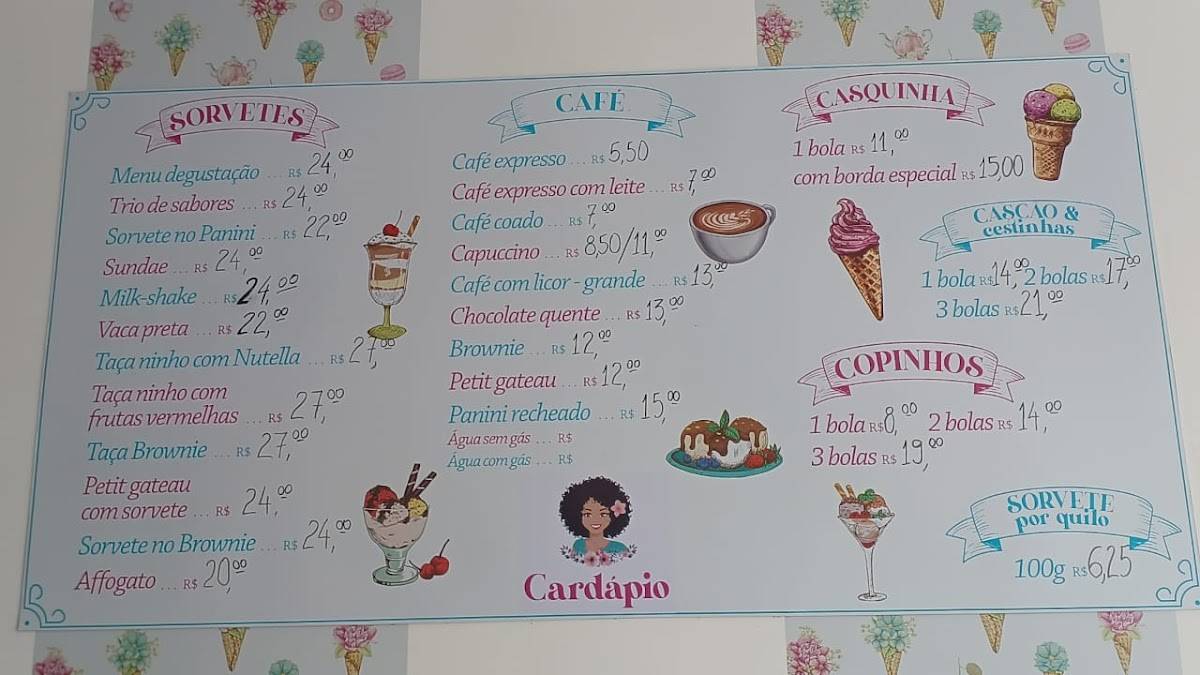 SORVETES
Menu degustação ... R$ 24,00
Trio de sabores ... R$ 24,00
Sorvete no Panini ... R$ 22,00
Sundae ... R$ 24,00
Milk-shake ... R$ 24,00
Vaca preta ... R$ 22,00
Taça ninho com Nutella ... R$ 27,00
Taça ninho com
frutas vermelhas ... R$ 27,00
Taça Brownie ... R$ 27,00
Petit gateau
com sorvete ... R$ 24,00
Sorvete no Brownie ... R$ 24,00
Affogato ... R$ 20,00
CAFÉ
Café expresso ... R$ 5,50
Café expresso com leite ... R$ 7,00
Café coado ... R$ 7,00
Capuccino ... R$ 8,50/11,00
Café com licor - grande ... R$ 13,00
Chocolate quente ... R$ 13,00
Brownie ... R$ 12,00
Petit gateau ... R$ 12,00
Panini recheado ... R$ 15,00
Água sem gás ... R$
Água com gás ... R$
Cardápio
CASQUINHA
1 bola R$ 11,00
com borda especial R$ 15,00
CASCÃO &
cestinhas
1 bola R$ 14,00 2 bolas R$ 17,00
3 bolas R$ 21,00
COPINHOS
1 bola R$ 8,00 2 bolas R$ 14,00
3 bolas R$ 19,00
SORVETE
por quilo
100g R$ 6,25